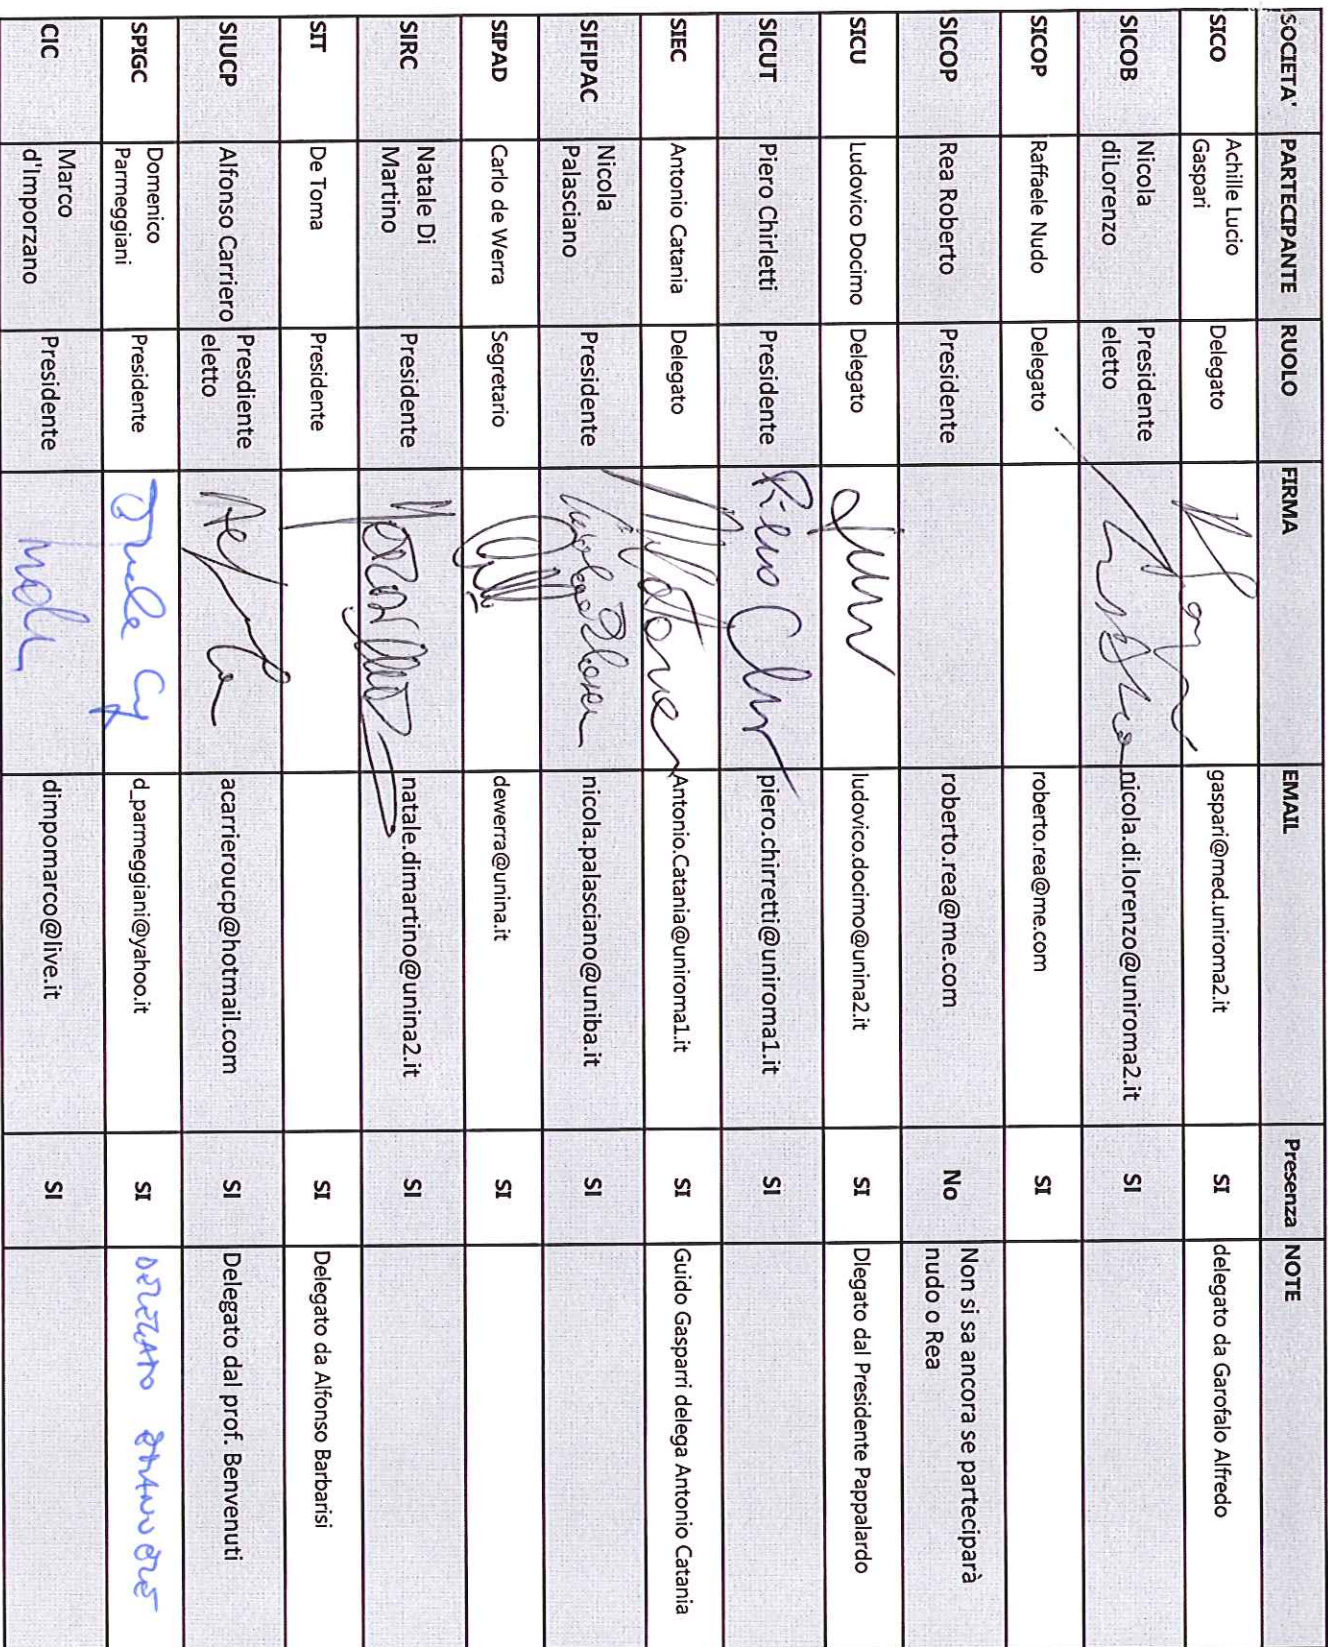 SOCIETA' PARTECIPANTE RUOLO FIRMA EMAIL Presenza NOTE
SICO Achille Lucio Delegato gaspari@med.uniroma2.it SI delegato da Garofalo Alfredo
Gaspari
SICOB Nicola Presidente nicola.di.lorenzo@uniroma2.it SI
diLorenzo eletto
SICOP Raffaele Nudo Delegato roberto.rea@me.com SI
SICOP Rea Roberto Presidente roberto.rea@me.com No Non si sa ancora se parteciparà
nudo o Rea
SICU Ludovico Docimo Delegato ludovico.docimo@unina2.it SI Dlegato dal Presidente Pappalardo
SICUT Piero Chirletti Presidente piero.chirretti@uniroma1.it SI
SIEC Antonio Catania Delegato Antonio.Catania@uniroma1.it SI Guido Gasparri delega Antonio Catania
SIFIPAC Nicola Presidente nicola.palasciano@uniba.it SI
Palasciano
SIPAD Carlo de Werra Segretario dewerra@unina.it SI
SIRC Natale Di Presidente natale.dimartino@unina2.it SI
Martino
SIT De Toma Presidente SI Delegato da Alfonso Barbarisi
SIUCP Alfonso Carriero Presdiente acarrieroucp@hotmail.com SI Delegato dal prof. Benvenuti
eletto
SPIGC Domenico Presidente d_parmeggiani@yahoo.it SI DELEGATO
Parmeggiani
CIC Marco Presidente dimpomarco@live.it SI
d'Imporzano